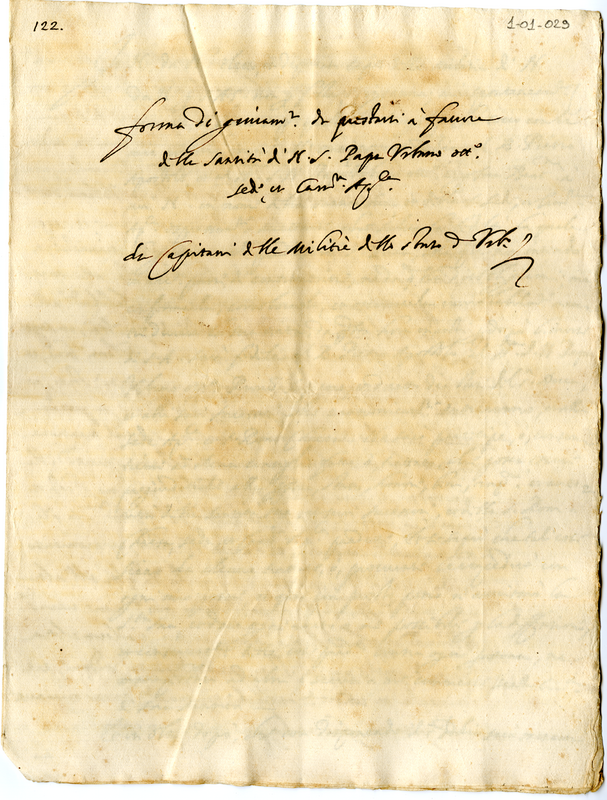 122.
1-01-029
forma di giuram.to da prestarsi à favore
della Santità di N. S. Papa Urbano ott.o
sed.e et Cam.ra Ap.lica
da Capitani delle Militie dello stato d Urb.o